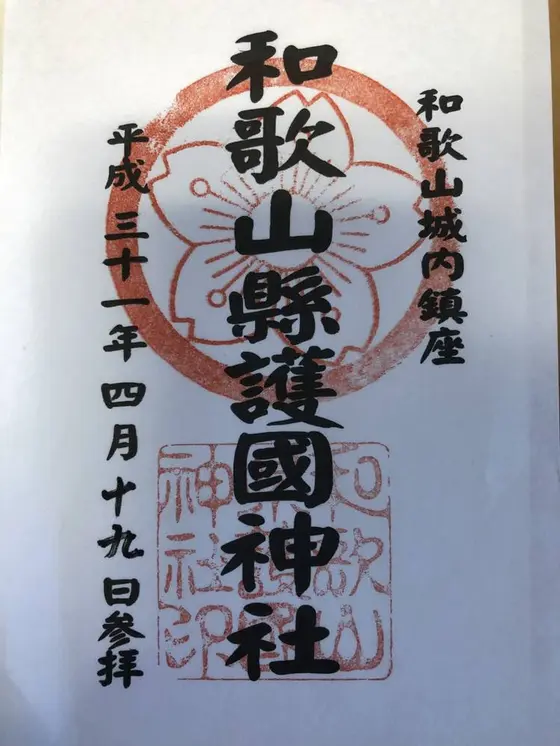 和歌山城内鎮座
和歌山縣護國神社
平成三十一年四月十九日参拝
和歌山
神社印